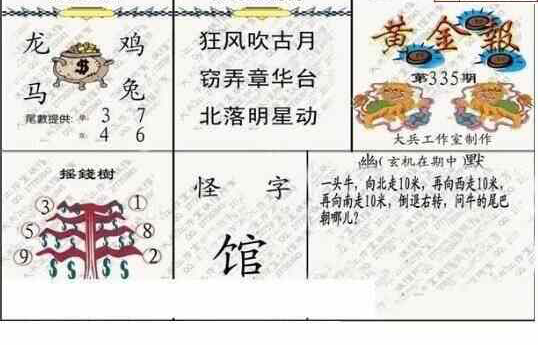 龙 鸡
马 兔
尾數提供: 3 7
4 6
狂风吹古月
窃弄章华台
北落明星动
黄金報
第335期
大兵工作室制作
摇錢樹
3 1
5 8
9 2
怪 字
馆
幽(玄机在期中)默
一头牛，向北走10米，再向西走10米，
再向南走10米，倒退右转，问牛的尾巴
朝哪儿？